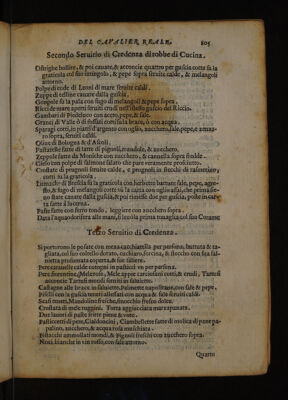 DEL CAVALIER REALE. 805
Secondo Seruitio di Credenza di robbe di Cucina.
Ostrighe bollite, & poi cauate, & acconcie quattro per guscio cotte sù la
graticola col suo intingolo, & pepe sopra seruite calde, & melangoli
attorno.
Polpe di code di Leoni di mare seruite caldi.
Zeppe di telline cauate dalla guscia
Gongole sù la pala con sugo di melangoli & pepe sopra.
Ricci de mare aperti seruiti crudi nell'istesso guscio del Riccio.
Gambari di Pioddecco con aceto, pepe, & sale.
Granci di Valle ò di fossati cotti su la brace, ò con acqua.
Sparagi cotti, in piatti d'argento con oglio, zucchero, sale, pepe,
sopra, seruiti caldi.
Oliue di Bologna & d'Ascoli.
Pastizzette fatte di latte di pignuli, mandole, & zucchero.
Zeppole fatte da Moniche con zucchero, & cannella sopra fredde.
Cielo con polpe di salmone salato che pare veramente prosciutto.
Crostate di prugnoli seruite calde, e prugnoli in stecchi di rosmarino,
cotti sù la graticola.
Lumache di Brescia sù la graticola con herbette battute, sale, pepe,
& sugo di melangoli cotte sù la carta con
state cauate dalla guscia, & poi rimesse due per guscia, poste in
ta fatte à lucerna.
Paste fatte con ferro tondo, leggiere con zucchero sopra.
Data l'acqua odorifera alle mani, si leuò la prima touaglia col suo Corame
Terzo Seruitio di Credenza.
Si portorono le posate con meza cucchiarella per persona, biscotta & ta
gliata, col suo coltello dorato, cucchiaro, forcina, & stecco con sua sal
uietta profumata coperta, & sue saliere.
Pere caruselle calde
Pere fiorentine, Melerose, Mele appie carcioffoli cotti, & crudi, Tartufi
acconcie Tartufi mondi seruiti in saluiette.
Castagne alle brace in saluiette, Palmette napolitane, con sale & pepe.
Piselli con la guscia teneri allessati con acqua & sale seruiti caldi.
Sedani mozzi, Mandorle fresche, finocchio fresco dolce.
Crostata di mele ruggini. Torta agghiacciata marzapanata.
Due lauori di paste sfritte piene & vote.
Pasticcetti di pere, Cialdoncini, Ciambellette fatte di medolla di pane pa
palino, zucchero, & acqua rosa muschiata.
Pistacchi ammollati mondi, & Pignoli freschi con zucchero sopra.
Noua bianche in vin rosso, con sale attorno.
Quarto